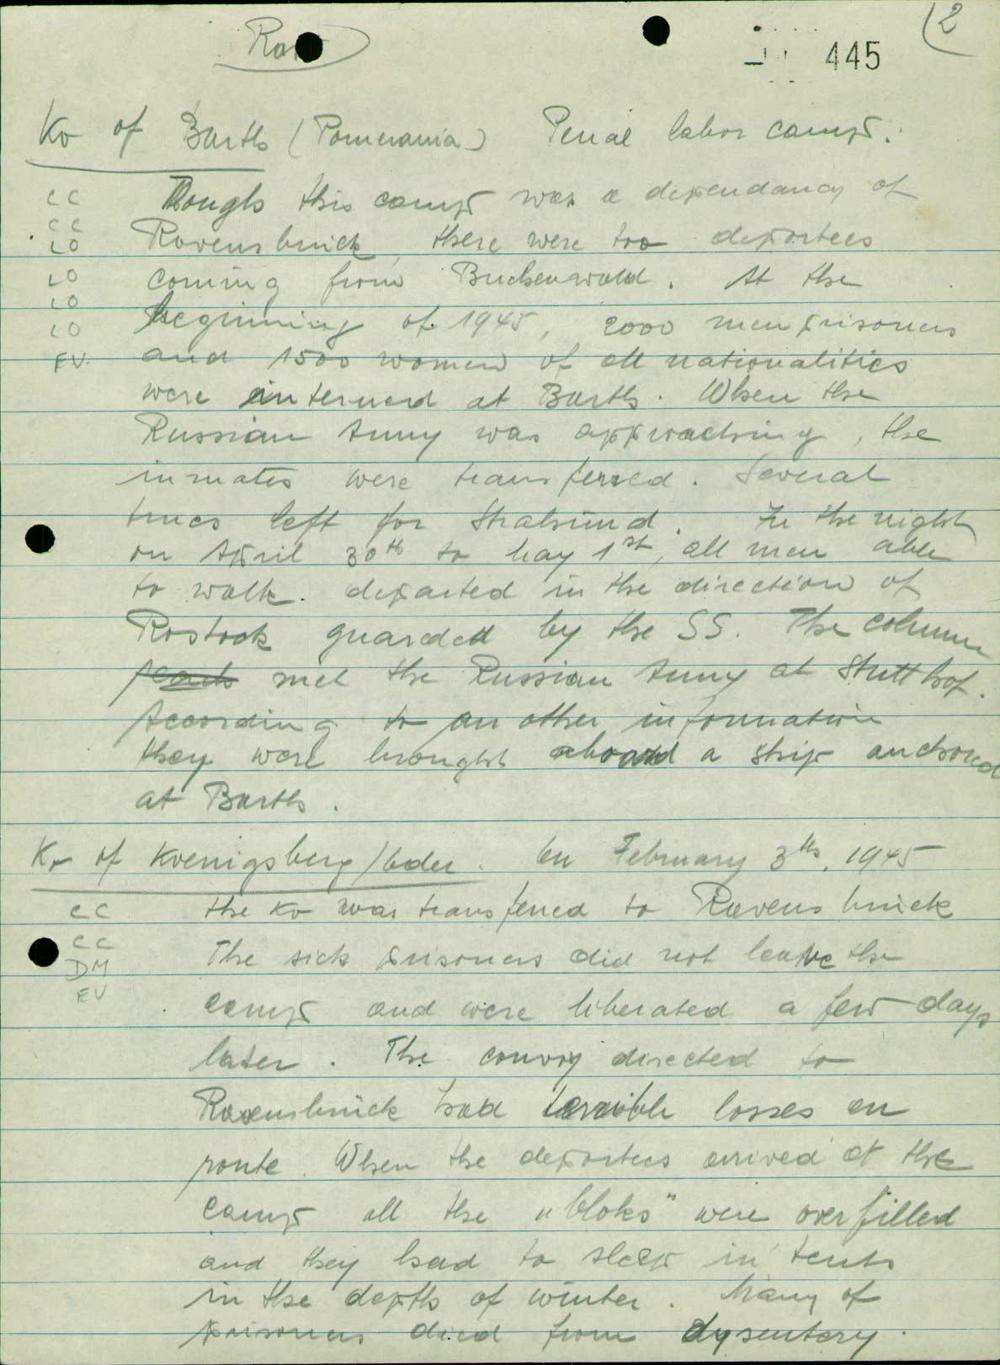 (2
445
Ko of Barth (Pomerania) Penal labor camp.
CC
CC
LO
LO
LO
LO
EV.
Though this camp was a dependancy of
Ravensbruick, there were too deportees
coming from Buchenwald. At the
beginning of 1945, 2000 men prisoners
and 1500 women of all nationalities
were interned at Barth. When the
Russian Army was approaching, the
inmates were transferred. Several
left for Stralsund. In the night
on April 30th to May 1st, all men able
to walk. departed in the direction of
Rostock guarded by the SS. The column
met the Russian Army at Stutthof.
According to an other information
they were brought aboard a ship anchored
at Barth.
Ko of Koenigsberg/Oder. On February 3th, 1945
CC
CC
DM
EV
the Ko was transferred to Ravensbruick
The sick prisoners did not leave the
camp and were liberated a few days
later. The convoy directed to
Ravensbruick had terrible losses en
route. When the deportees arrived at the
camp all the "bloks" were overfilled
and they had to sleep in tents
in the depth of winter. Many of
prisoners died from dysentery.